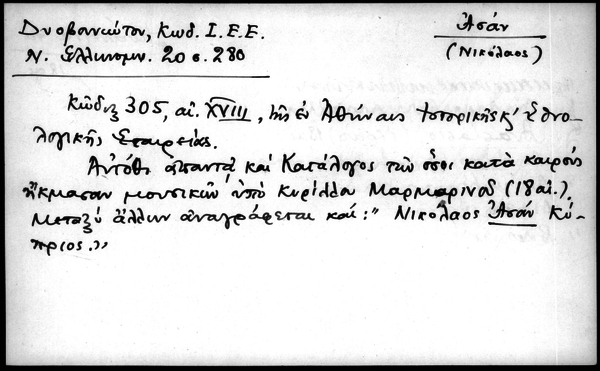 Δυοβουνιώτου, Κωδ. Ι.Ε.Ε.
Ν. Ἑλληνομν. 20 σ. 280
Ἀσάν
(Νικόλαος)
Κῶδιξ 305, αἰ. XVIII, τῆς ἐν Ἀθήναις Ἱστορικῆς κ' Ἐθνο-
λογικῆς Ἑταιρείας.
Αὐτόθι ἀπαντᾷ καὶ Κατάλογος τῶν ὅσοι κατὰ καιροὺς
ἤκμασαν μουσικῶν ὑπὸ Κυρίλλου Μαρμαρινοῦ (18 αἰ.).
Μεταξὺ ἄλλων ἀναγράφεται καὶ: "Νικόλαος Ἀσάν Κύ-
πριος."